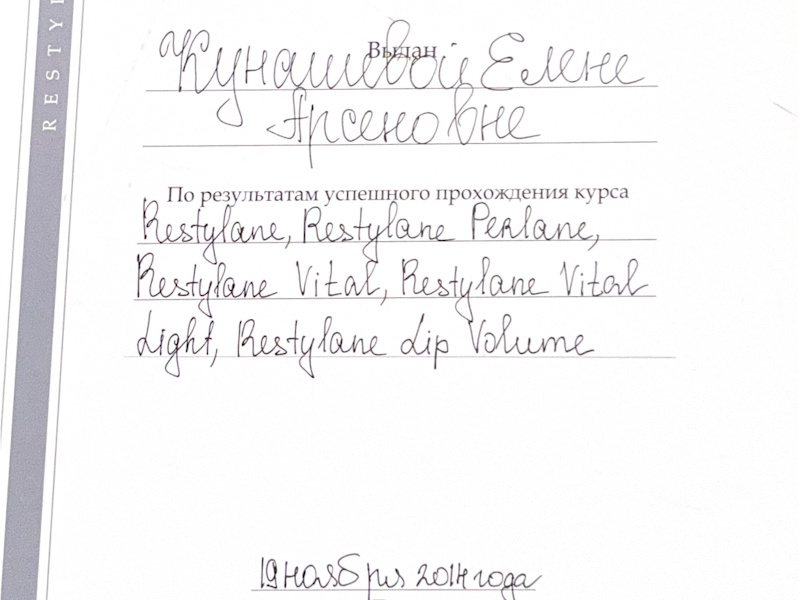 RESTYL
Выдан
Кунашевой Елене
Арсеновне
По результатам успешного прохождения курса
Restylane, Restylane Perlane,
Restylane Vital, Restylane Vital
Light, Restylane Lip Volume
19 ноября 2014 года